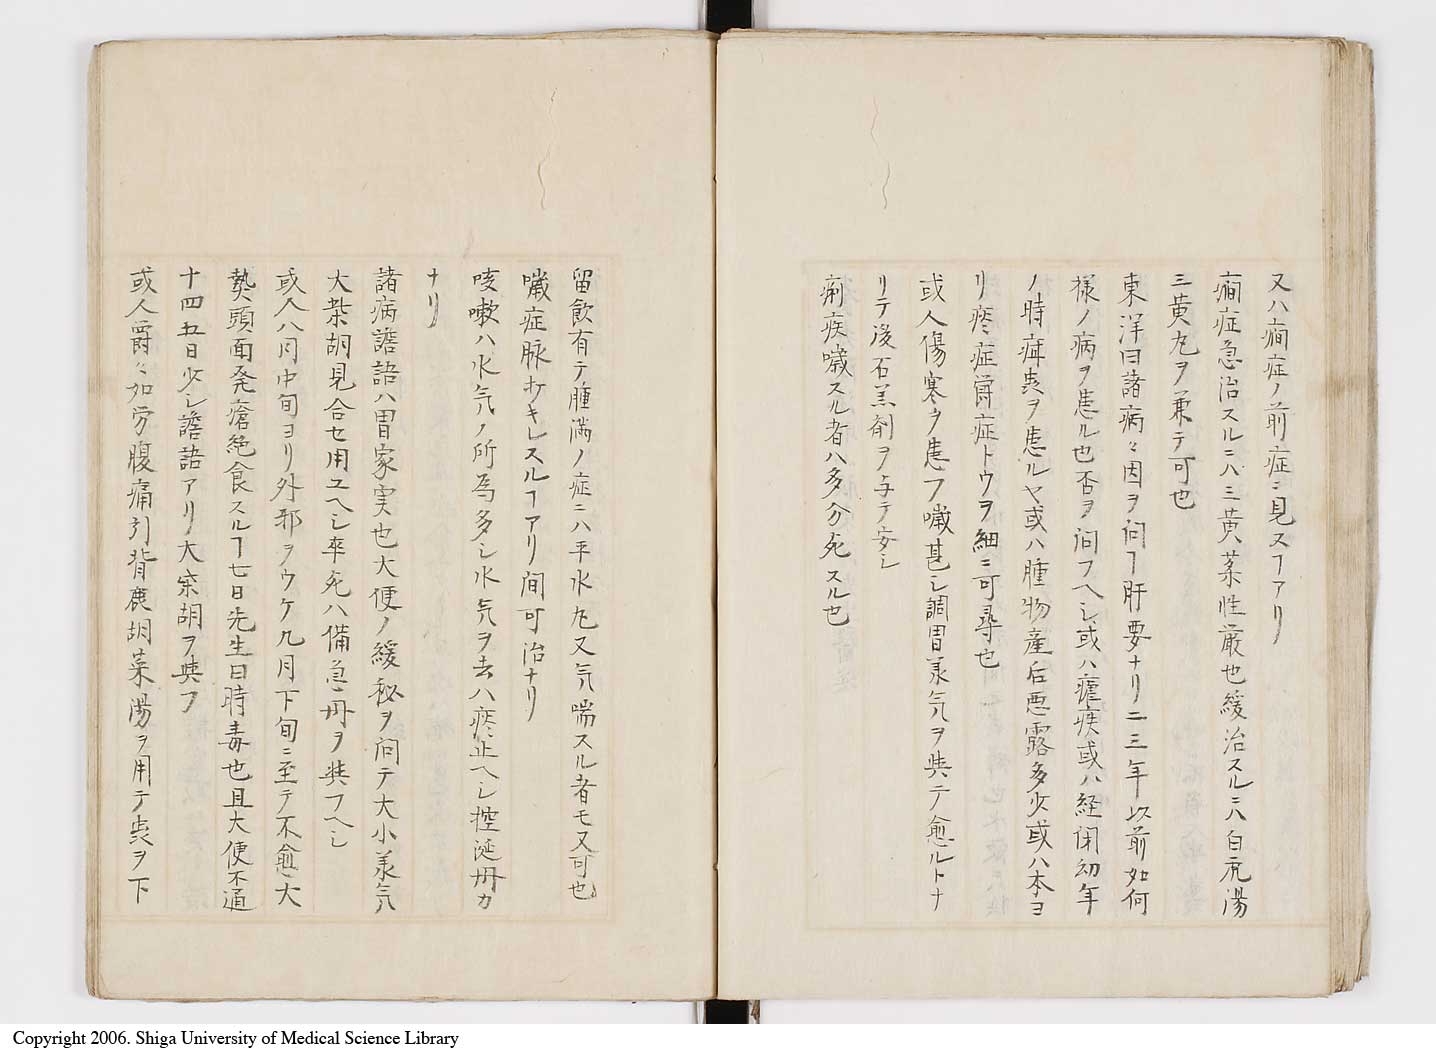 又ハ癇症ノ前症ニ見スヿアリ
癇症急治スルニハ三黄菜性厳也緩治スルニハ白虎湯
三黄丸ヲ兼テ可也
東洋曰諸病々因ヲ问ヿ肝要ナリ二三年以前如何
様ノ病ヲ患ル也否ヲ问フヘシ或ハ瘧疾或ハ経闭幼年
ノ時疳虫ヲ患ルヤ或ハ腫物産后悪露多少或ハ本ヨ
リ痿症労症トウヲ細ニ可尋也
或人傷寒ヲ患フ噦甚シ調胃承気ヲ與テ愈ルトナ
リテ後石羔剤ヲ与テ安シ
痢疾噦スル者ハ多分死スル也
留飲有テ腫満ノ症ニハ平水丸又気喘スル者モ又可也
噦症脉ホキレスルヿアリ间可治ナリ
咳嗽ハ水気ノ所為多シ水気ヲ去ハ痰ニ止ヘシ控涎丹カ
ナリ
諸病譫語ハ胃家実也大便ノ緩秘ヲ问テ大小承気
大柴胡見合セ用ユヘシ卒死ハ備急丹ヲ與フヘシ
或人八月中旬ヨリ外邪ヲウケ九月下旬ニ至テ不愈大
熱頭面発瘡絶食スルヿ七日先生曰時毒也且大便不通
十四五日少シ譫語アリ大柴胡ヲ與フ
或人欝々如労腹痛引背鹿胡菜湯ヲ用テ虫ヲ下
Copyright 2006. Shiga University of Medical Science Library